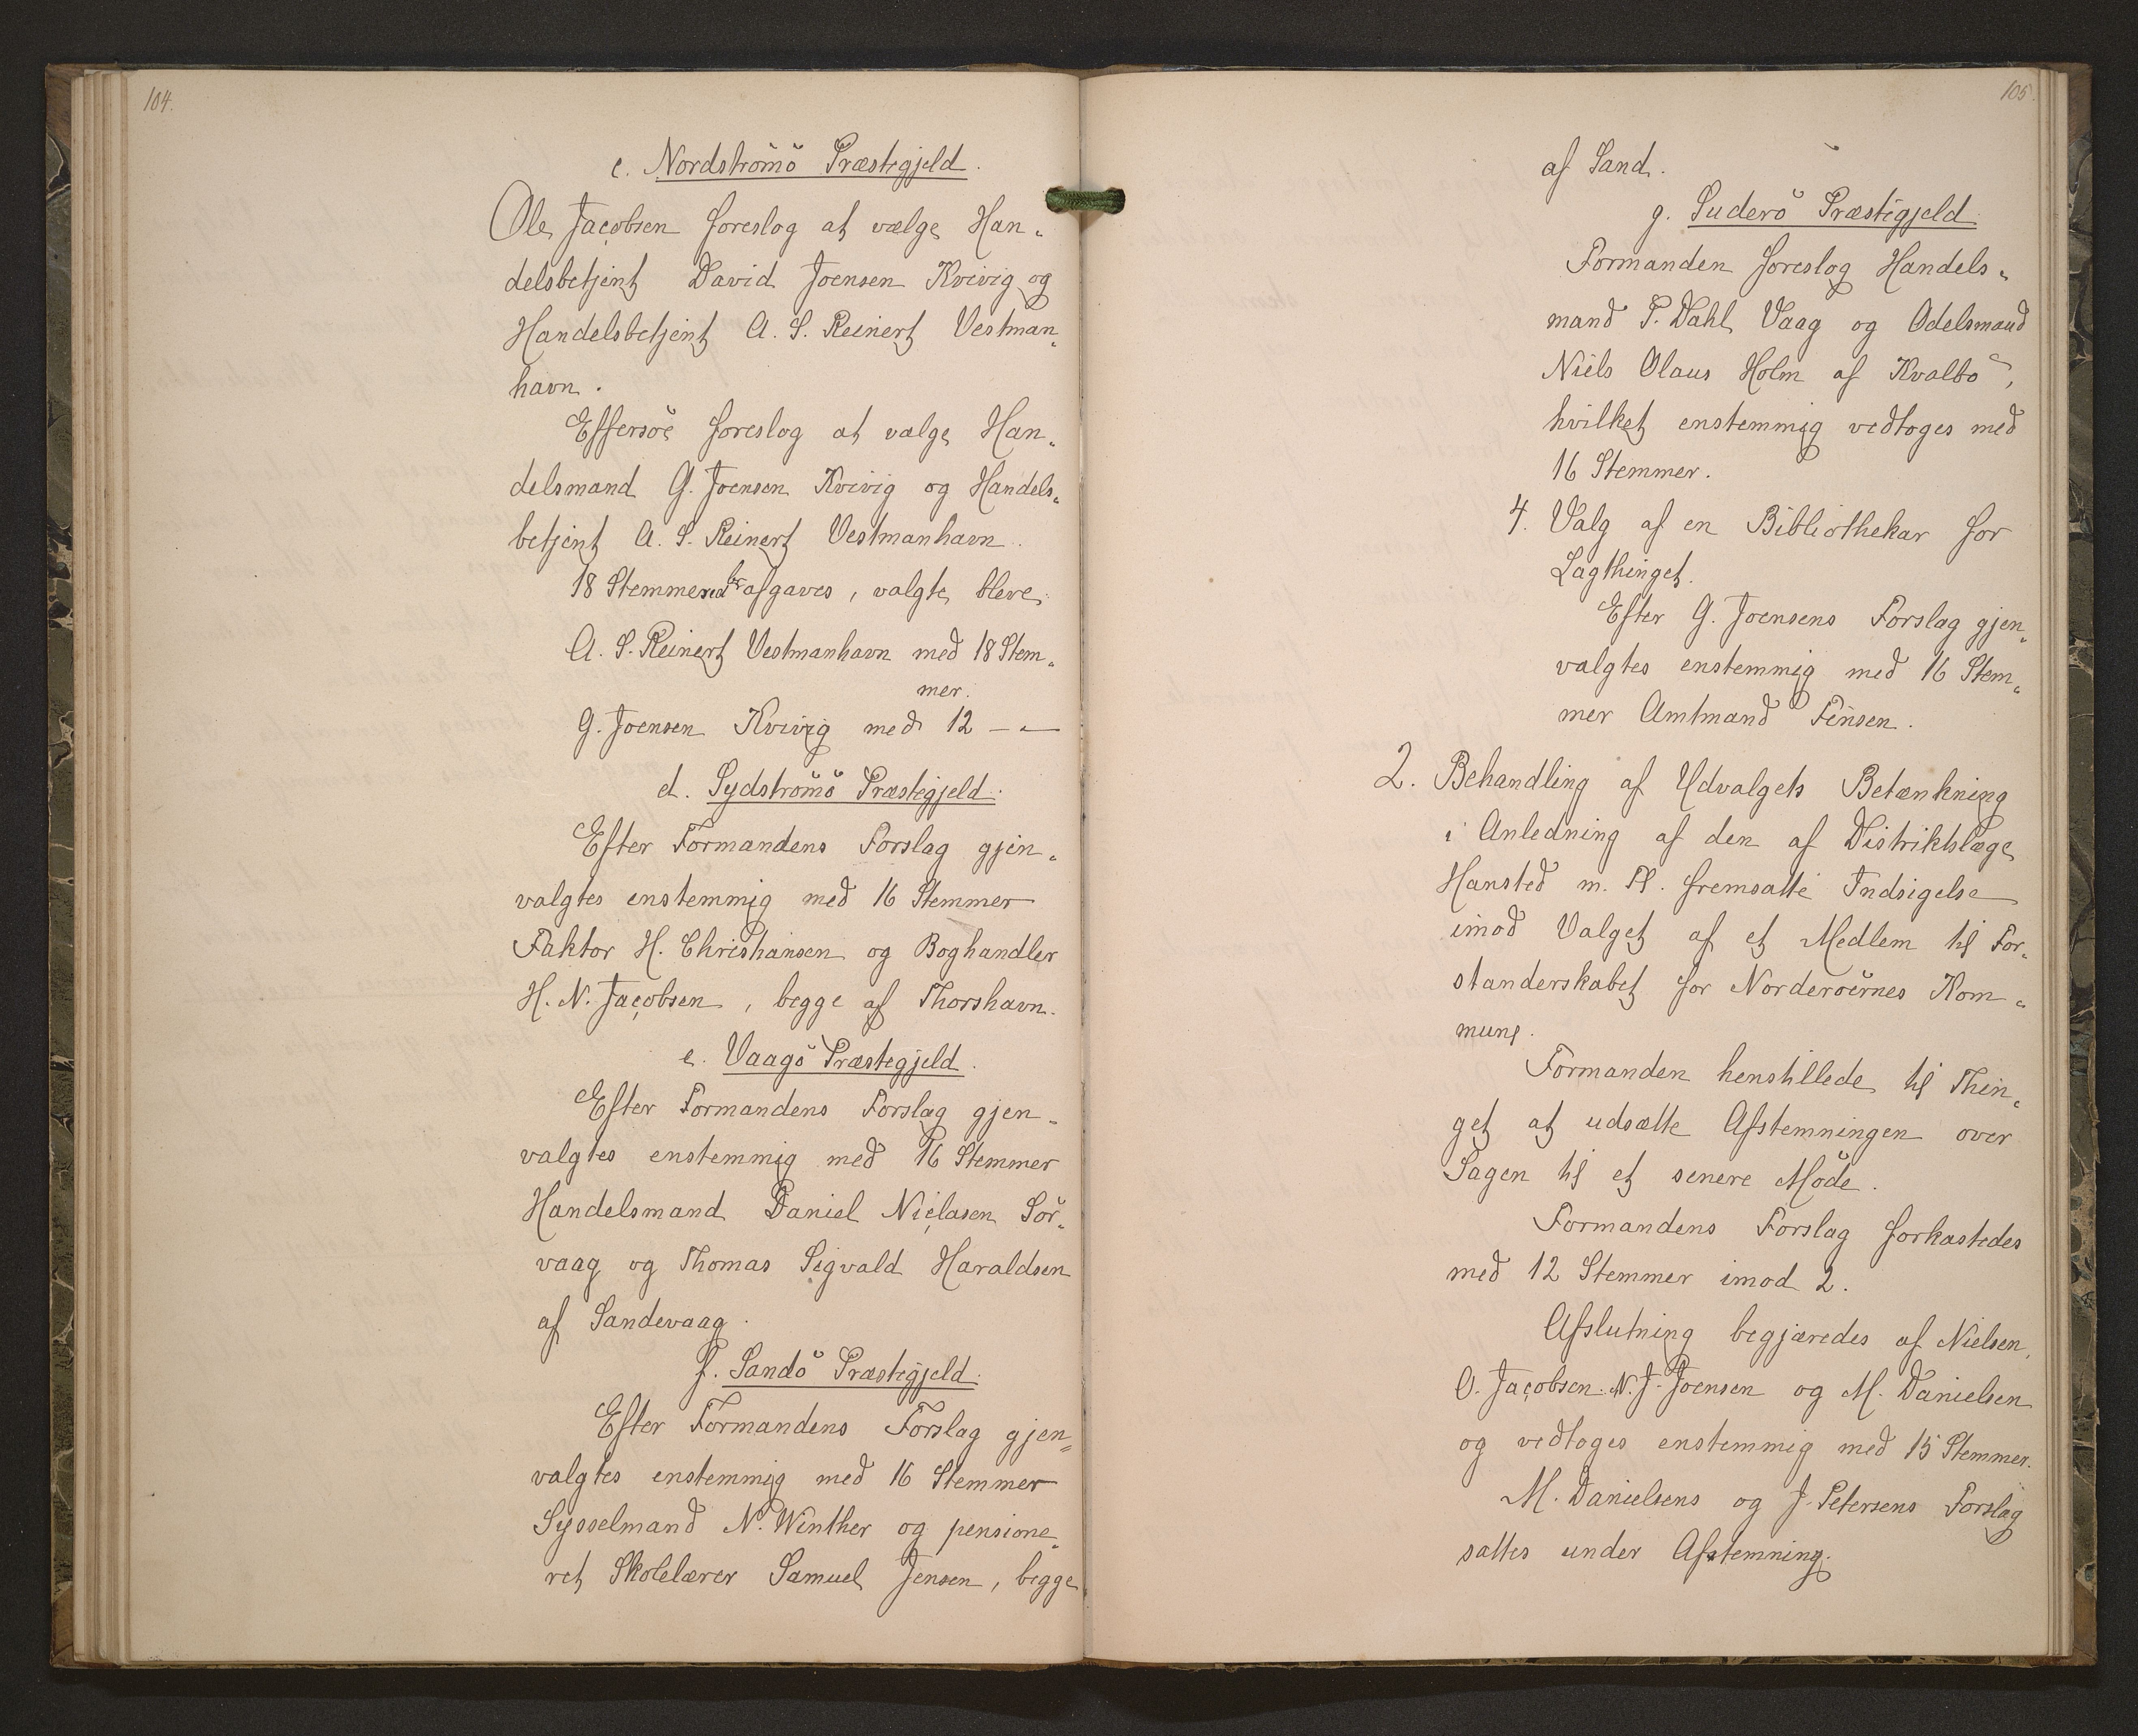 104.
c. Nordströmö Præstegjeld.
Ole Jacobsen foreslog at vælge Han-
delsbetjent David Joensen Kvivig og
Handelsbetjent A. S. Reinert Vestman-
havn.
Effersöe foreslog at vælge Han-
delsmand G. Joensen Kvivig og Handels-
betjent A. S. Reinert Vestmanhavn.
18 Stemmesedler afgaves, valgte bleve
A. S. Reinert Vestmanhavn med 18 Stem-
mer.
G. Joensen Kvivig med 12 — " —
d. Sydströmö Præstegjeld.
Efter Formandens Forslag gjen-
valgtes enstemmig med 16 Stemmer
Faktor H. Christiansen og Boghandler
H. N. Jacobsen, begge af Thorshavn.
e. Vaagö Præstegjeld.
Efter Formandens Forslag gjen-
valgtes enstemmig med 16 Stemmer
Handelsmand Daniel Niclasen Sör-
vaag og Thomas Sigvald Haraldsen
af Sandevaag.
f. Sandö Præstegjeld.
Efter Formandens Forslag gjen-
valgtes enstemmig med 16 Stemmer
Sysselmand N. Winther og pensione-
ret Skolelærer Samuel Jensen, begge
105.
af Sand.
g. Suderö Præstegjeld.
Formanden foreslog Handels-
mand P. Dahl Vaag og Odelsmand
Niels Olaus Holm af Kvalbö,
hvilket enstemmig vedtoges med
16 Stemmer.
4. Valg af en Bibliothekar for
Lagthinget.
Efter G. Joensens Forslag gjen-
valgtes enstemmig med 16 Stem-
mer Amtmand Finsen.
2. Behandling af Udvalgets Betænkning
i Anledning af den af Distriktslæge
Hansted m. Fl. fremsatte Indsigelse
imod Valget af et Medlem til For-
standerskabet for Norderöernes Kom-
mune.
Formanden henstillede til Thin-
get at udsætte Afstemningen over
Sagen til et senere Möde.
Formandens Forslag forkastedes
med 12 Stemmer imod 2.
Afslutning begjæredes af Nielsen,
O. Jacobsen. N. J. Joensen og M. Danielsen
og vedtoges enstemmig med 15 Stemmer.
M. Danielsens og J. Petersens Forslag
sattes under Afstemning.